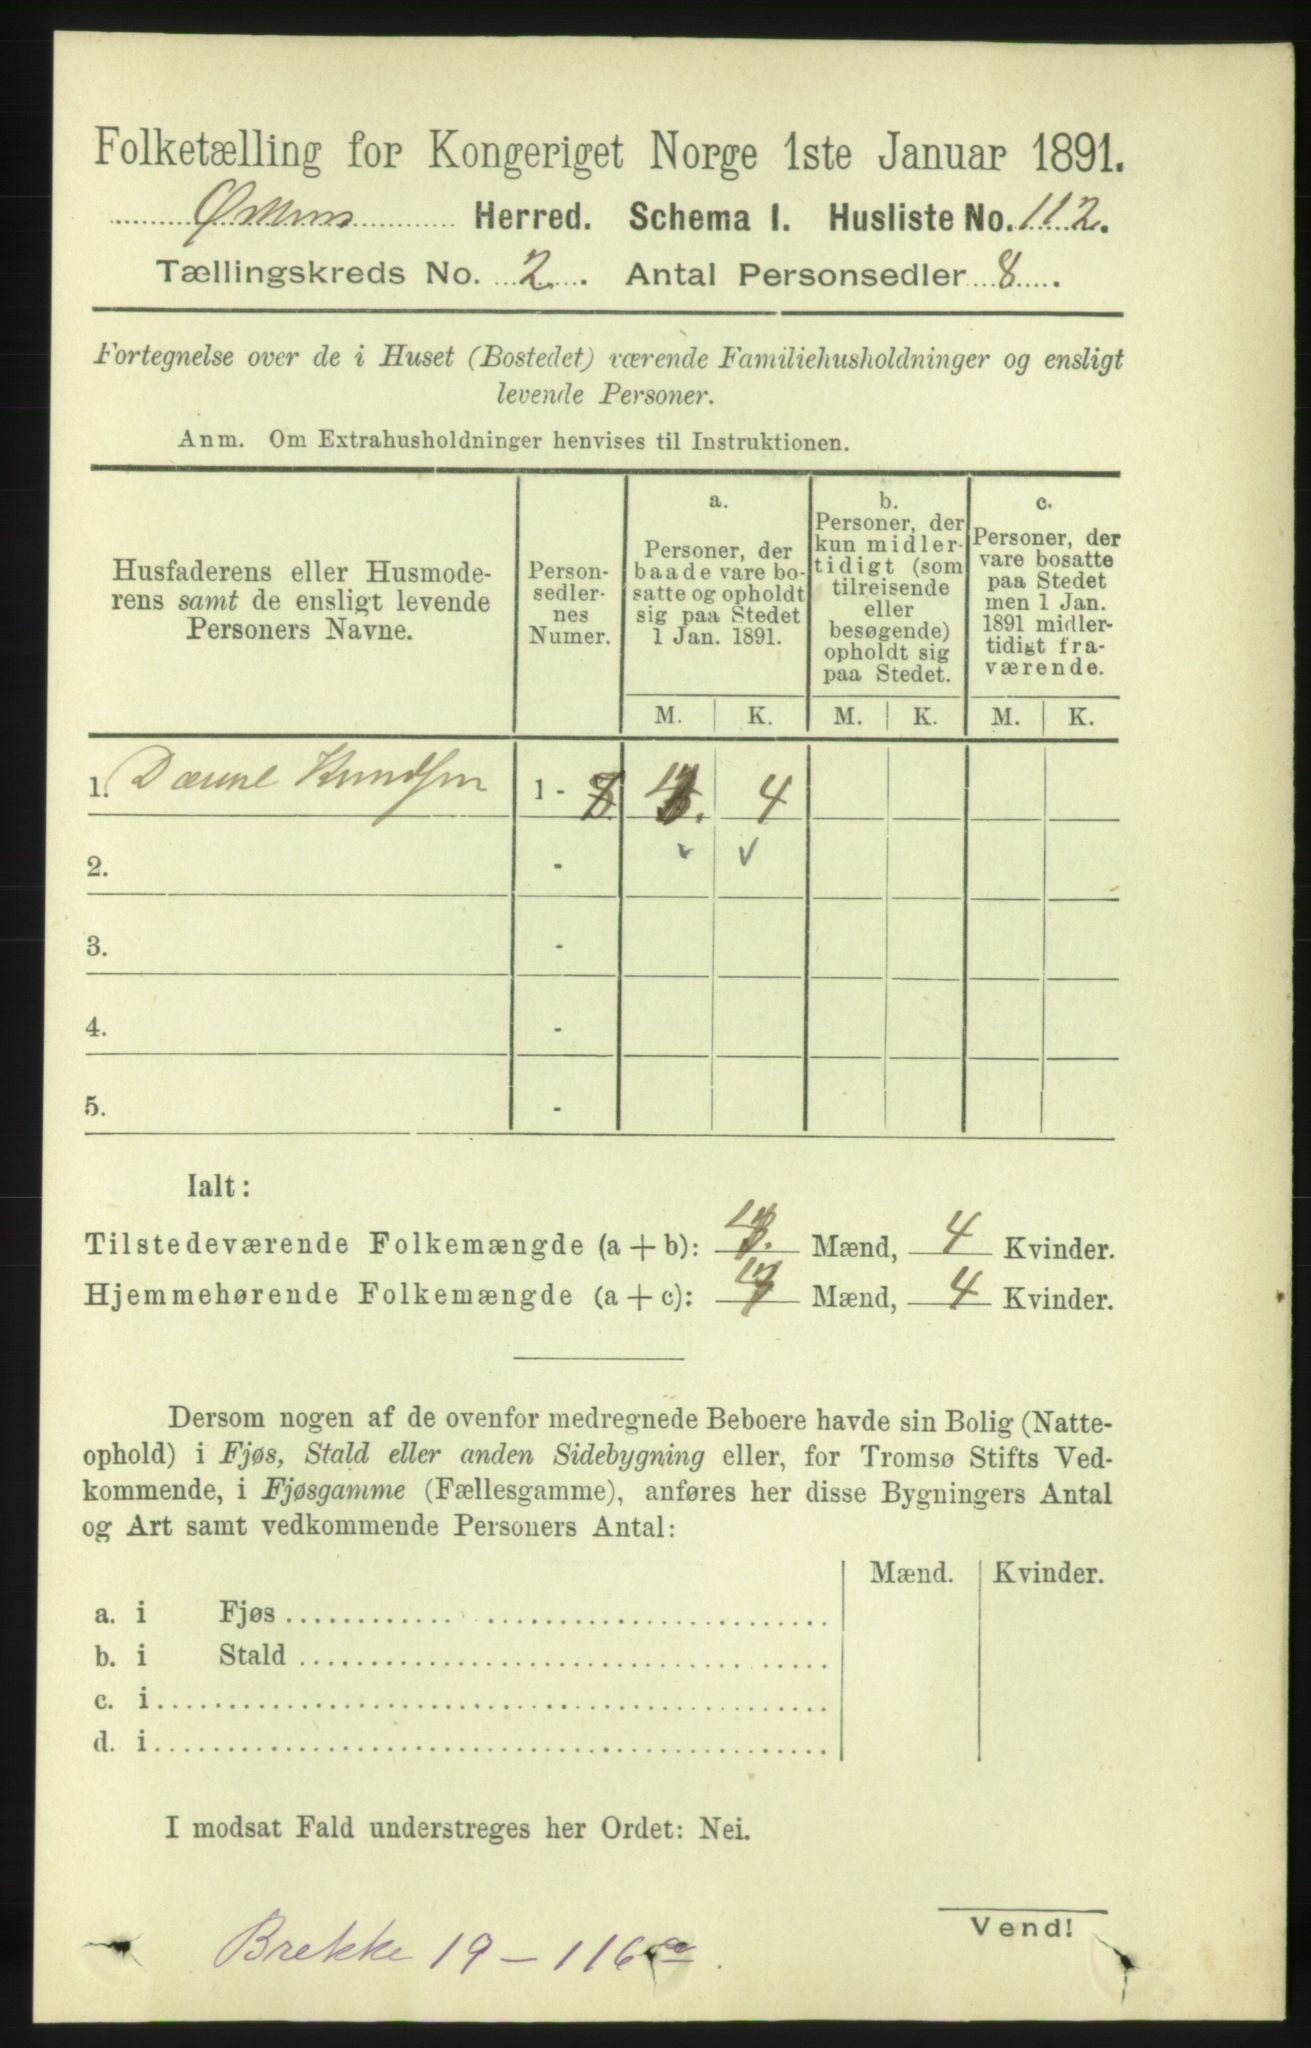 Folketælling for Kongeriget Norge 1ste Januar 1891.
Herred. Schema I. Husliste No. 112.
Tællingskreds No. 2. Antal Personsedler 8.
Fortegnelse over de i Huset (Bostedet) værende Familiehusholdninger og ensligt
levende Personer.
Anm. Om Extrahusholdninger henvises til Instruktionen.
Husfaderens eller Husmode-
rens samt de ensligt levende
Personers Navne.
Person-
sedler-
nes
Numer.
a.
Personer, der
baade vare bo-
satte og opholdt
sig paa Stedet
1 Jan. 1891.
b.
Personer, der
kun midler-
tidigt (som
tilreisende
eller
besøgende)
opholdt sig
paa Stedet.
c.
Personer, der
vare bosatte
paa Stedet
men 1 Jan.
1891 midler-
tidigt fra-
værende.
M. K. M. K. M. K.
1. Knudsen 1 - 8 4 4
2. -
3. -
4. -
5. -
Ialt:
Tilstedeværende Folkemængde (a + b): 4 Mænd, 4 Kvinder.
Hjemmehørende Folkemængde (a + c): 4 Mænd, 4 Kvinder.
Dersom nogen af de ovenfor medregnede Beboere havde sin Bolig (Natte-
ophold) i Fjøs, Stald eller anden Sidebygning eller, for Tromsø Stifts Ved-
kommende, i Fjøsgamme (Fællesgamme), anføres her disse Bygningers Antal
og Art samt vedkommende Personers Antal:
Mænd. Kvinder.
a. i Fjøs
b. i Stald
c. i
d. i
I modsat Fald understreges her Ordet: Nei.
Vend!
Brekke 19 - 116 a.